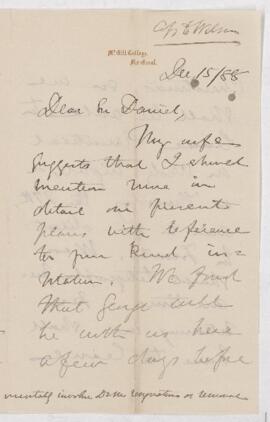 McGill College,
Montreal.
Dec 15/88
Dear Mr Daniel,
My wife
suggests that I should
mention more in
detail our present
plans with reference
to your kind in=
vitation. We find
that George will
be with us here
a few days before